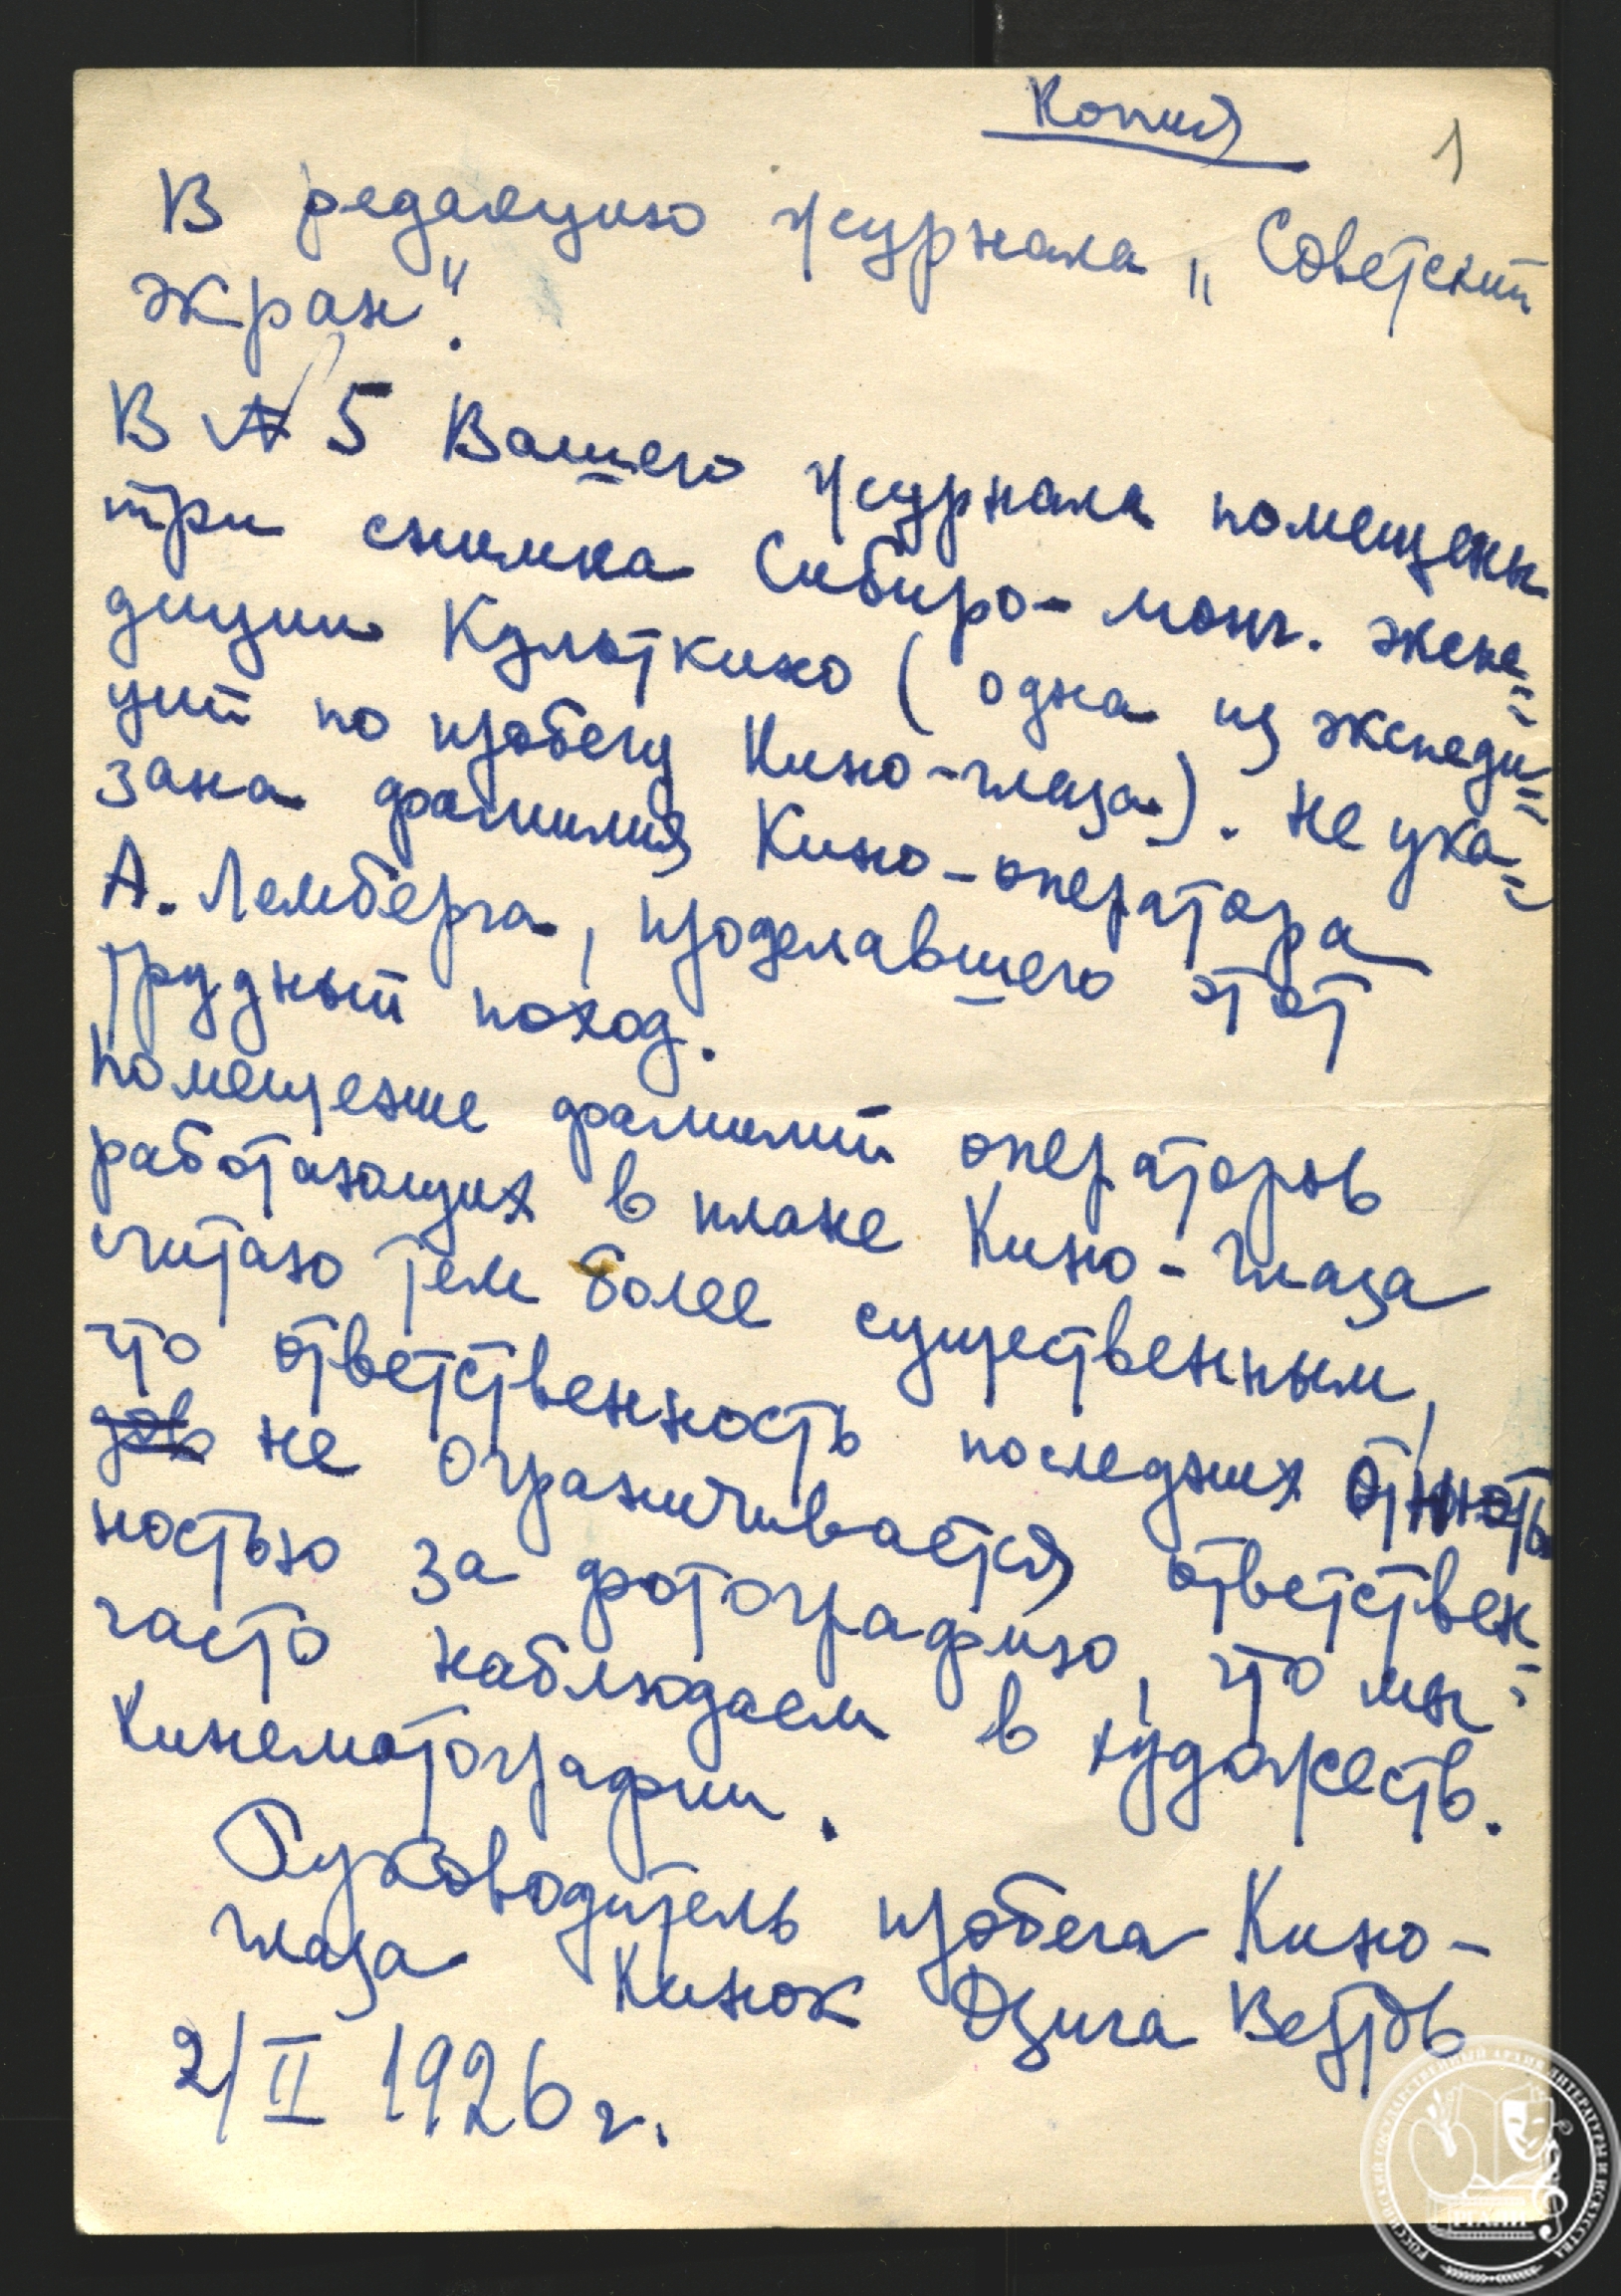 Копия
1
В редакцию журнала „Советский
экран".
В № 5 Вашего журнала помещены
три снимка Сибиро-монг. экспе=
диции Культкино (одна из экспеди=
ций по пробегу Кино-глаза). Не ука=
зана фамилия Кино-оператора
А. Лемберга, проделавшего этот
трудный поход.
Помещение фамилий операторов
работающих в плане Кино-Глаза
считаю тем более существенным,
что ответственность последних
не ограничивается ответствен=
ностью за фотографию, что мы
часто наблюдаем в художеств.
Кинематографии.
Руководитель пробега Кино-
глаза Кинок Дзига Вертов
2/II 1926 г.
РОССИЙСКИЙ ГОСУДАРСТВЕННЫЙ АРХИВ ЛИТЕРАТУРЫ И ИСКУССТВА
РГАЛИ